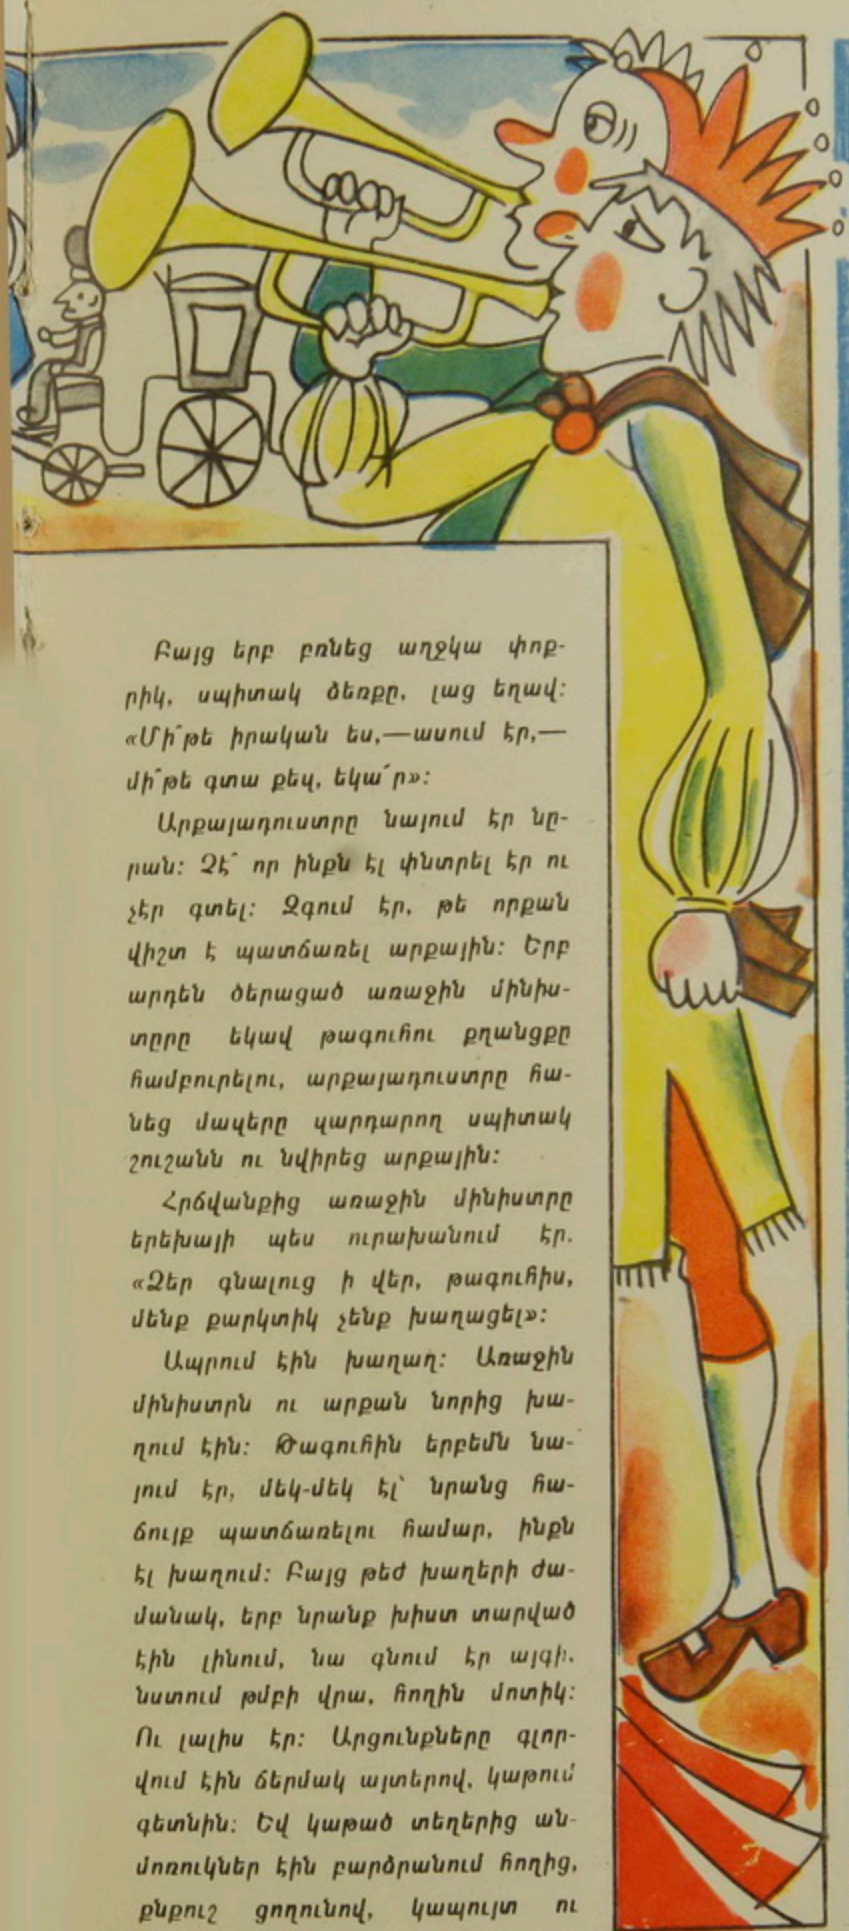 Բայց երբ բռնեց աղջկա փոք-
րիկ, սպիտակ ձեռքը, լաց եղավ:
«Մի՞թե իրական ես,—ասում էր,—
մի՞թե գտա քեզ, եկա՞ր»:
Արքայադուստրը նայում էր նը-
րան: Չէ՞ որ ինքն էլ փնտրել էր ու
չէր գտել: Զգում էր, թե որքան
վիշտ է պատճառել արքային: Երբ
արդեն ծերացած առաջին մինիս-
տըրը եկավ թագուհու քղանցքը
համբուրելու, արքայադուստրը հա-
նեց մազերը զարդարող սպիտակ
շուշանն ու նվիրեց արքային:
Հրճվանքից առաջին մինիստրը
երեխայի պես ուրախանում էր.
«Ձեր գնալուց ի վեր, թագուհիս,
մենք քարկտիկ չենք խաղացել»:
Ապրում էին խաղաղ: Առաջին
մինիստրն ու արքան նորից խա-
ղում էին: Թագուհին երբեմն նա-
յում էր, մեկ-մեկ էլ՝ նրանց հա-
ճույք պատճառելու համար, ինքն
էլ խաղում: Բայց թեժ խաղերի ժա-
մանակ, երբ նրանք խիստ տարված
էին լինում, նա գնում էր այգի.
նստում թմբի վրա, հողին մոտիկ:
Ու լալիս էր: Արցունքները գլոր-
վում էին ճերմակ այտերով, կաթում
գետնին: Եվ կաթած տեղերից ան-
մոռուկներ էին բարձրանում հողից,
քնքուշ ցողունով, կապույտ ու